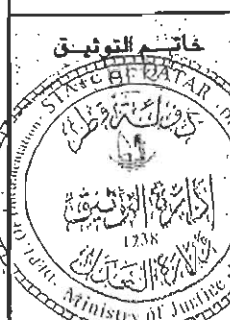 خاتم التوثيق
STATE OF QATAR
دولة قطر
إدارة التوثيق
1238
وزارة العدل
Ministry of Justice